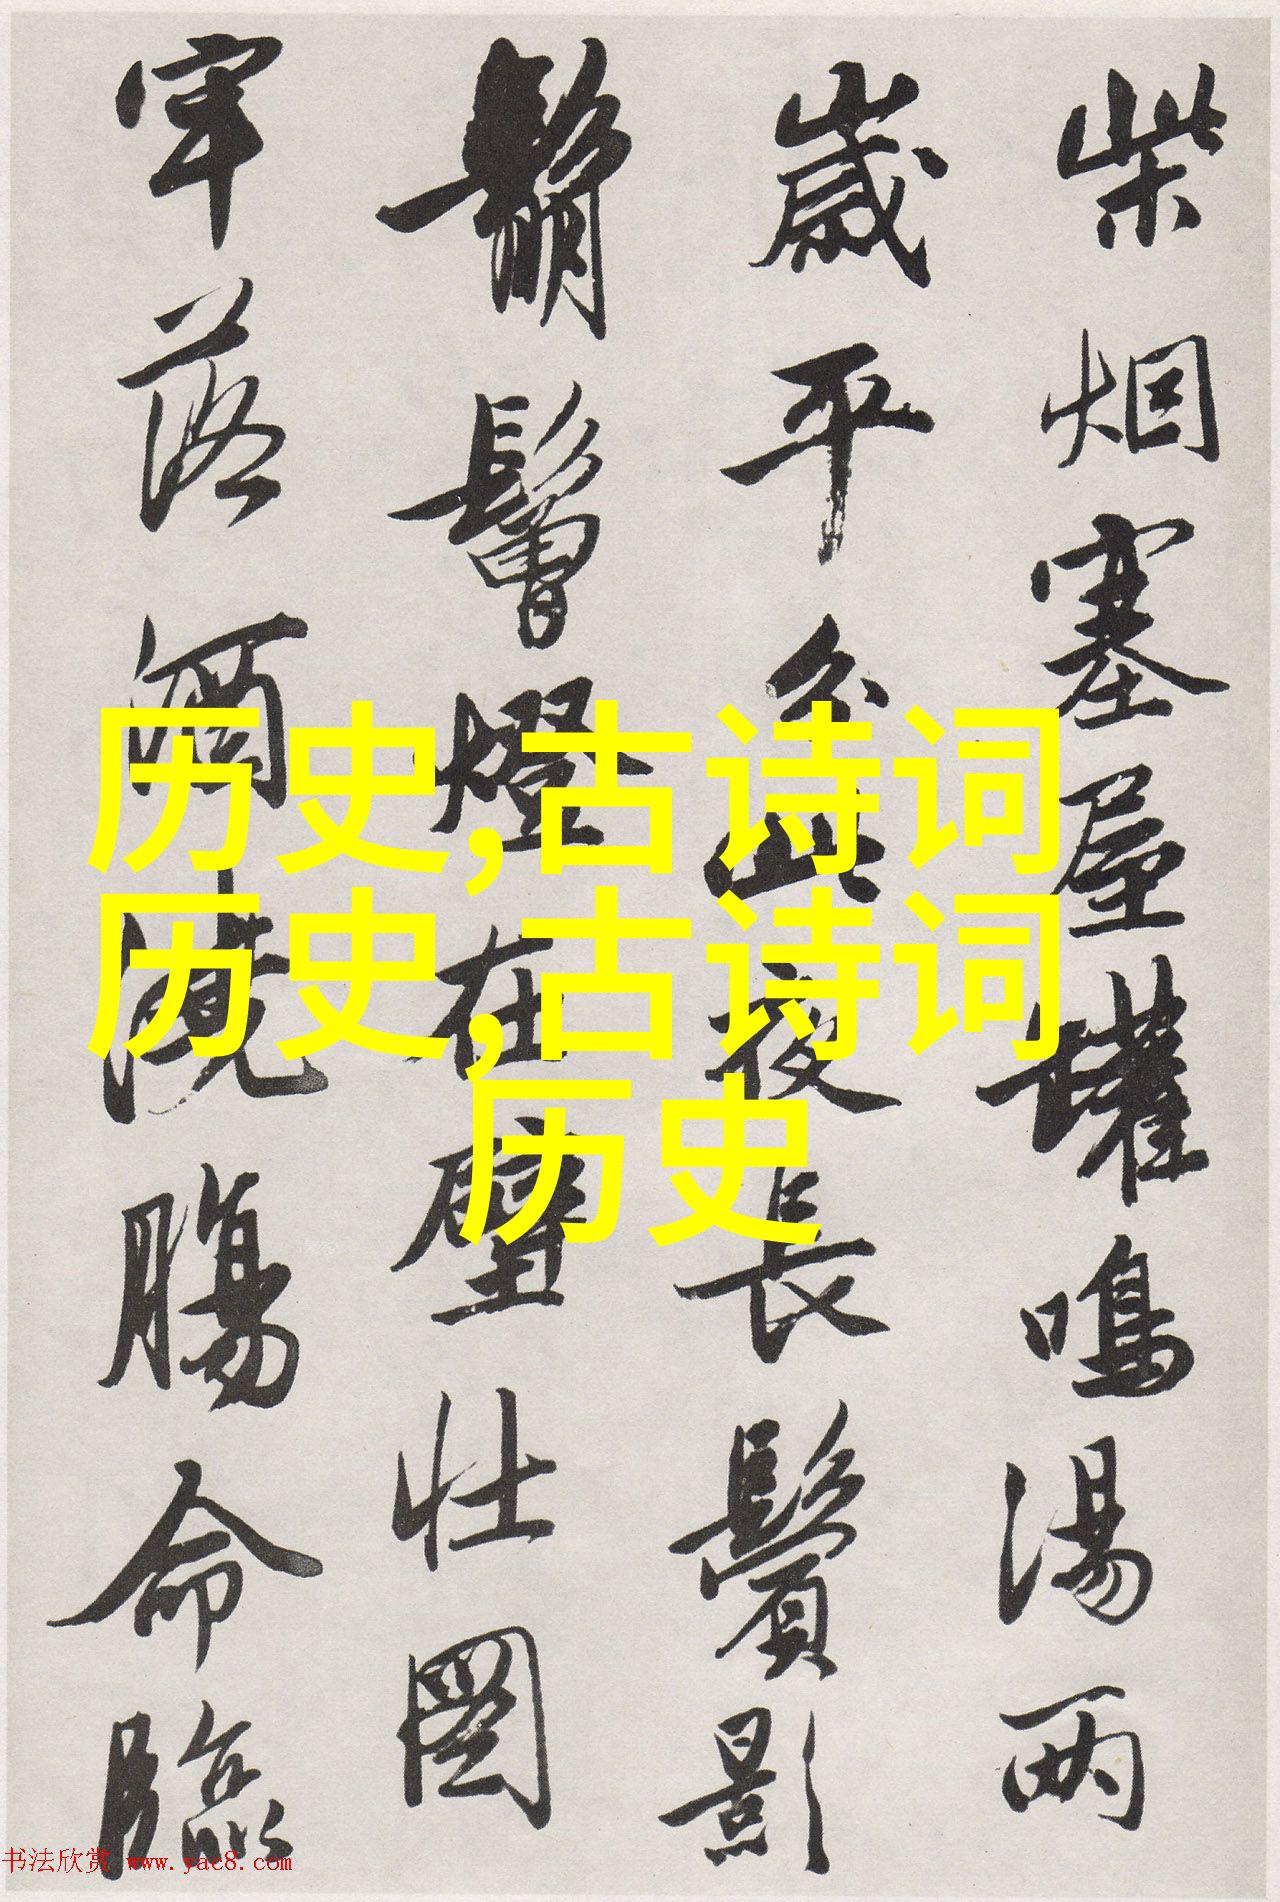 柴烟塞屋罐鳴湯兩
歲平分此夜長鬢影
鬅鬙燈在壁壯圖
牢落酒澆腸命臨
历史,古诗词
历史,古诗词
历史
书法欣赏 www.yac8.com